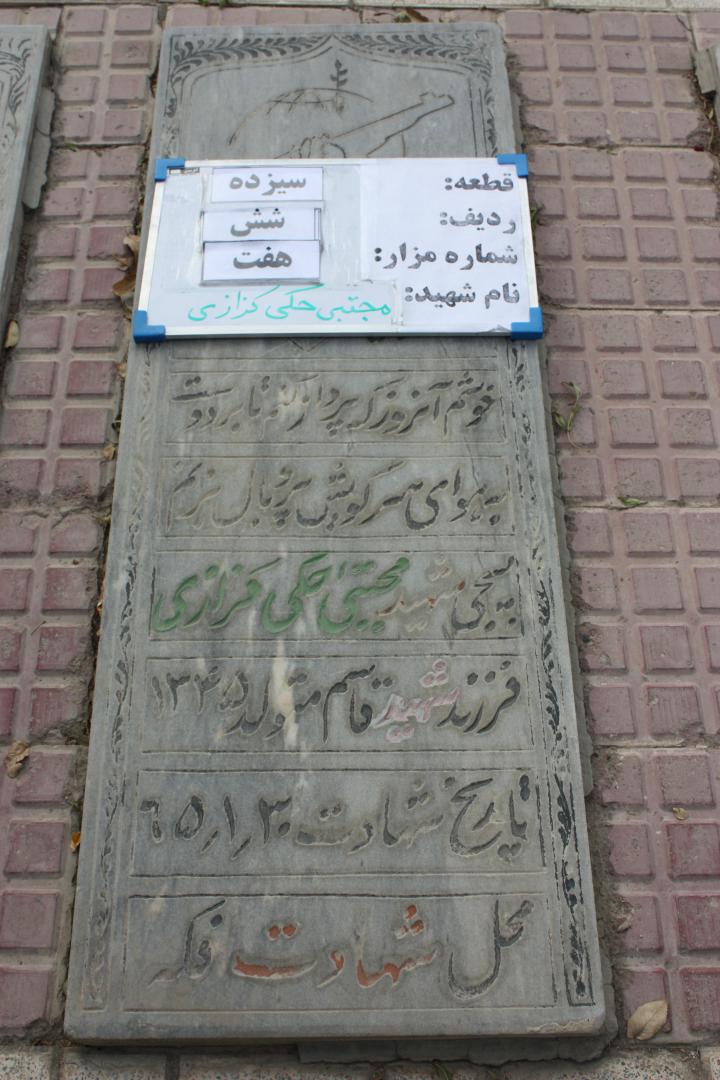 قطعه: سیزده
ردیف: شش
شماره مزار: هفت
نام شهید: مجتبی حگی کزازی
خوشم آنروز که پرواز کنم تا بر دوست
به هوای سر کویش پر و بال بزنم
بسیجی شهید مجتبی حکی کزازی
فرزند شهید قاسم متولد ۱۳۴۵
تاریخ شهادت ۶۵٫۱٫۳۰
محل شهادت فکه